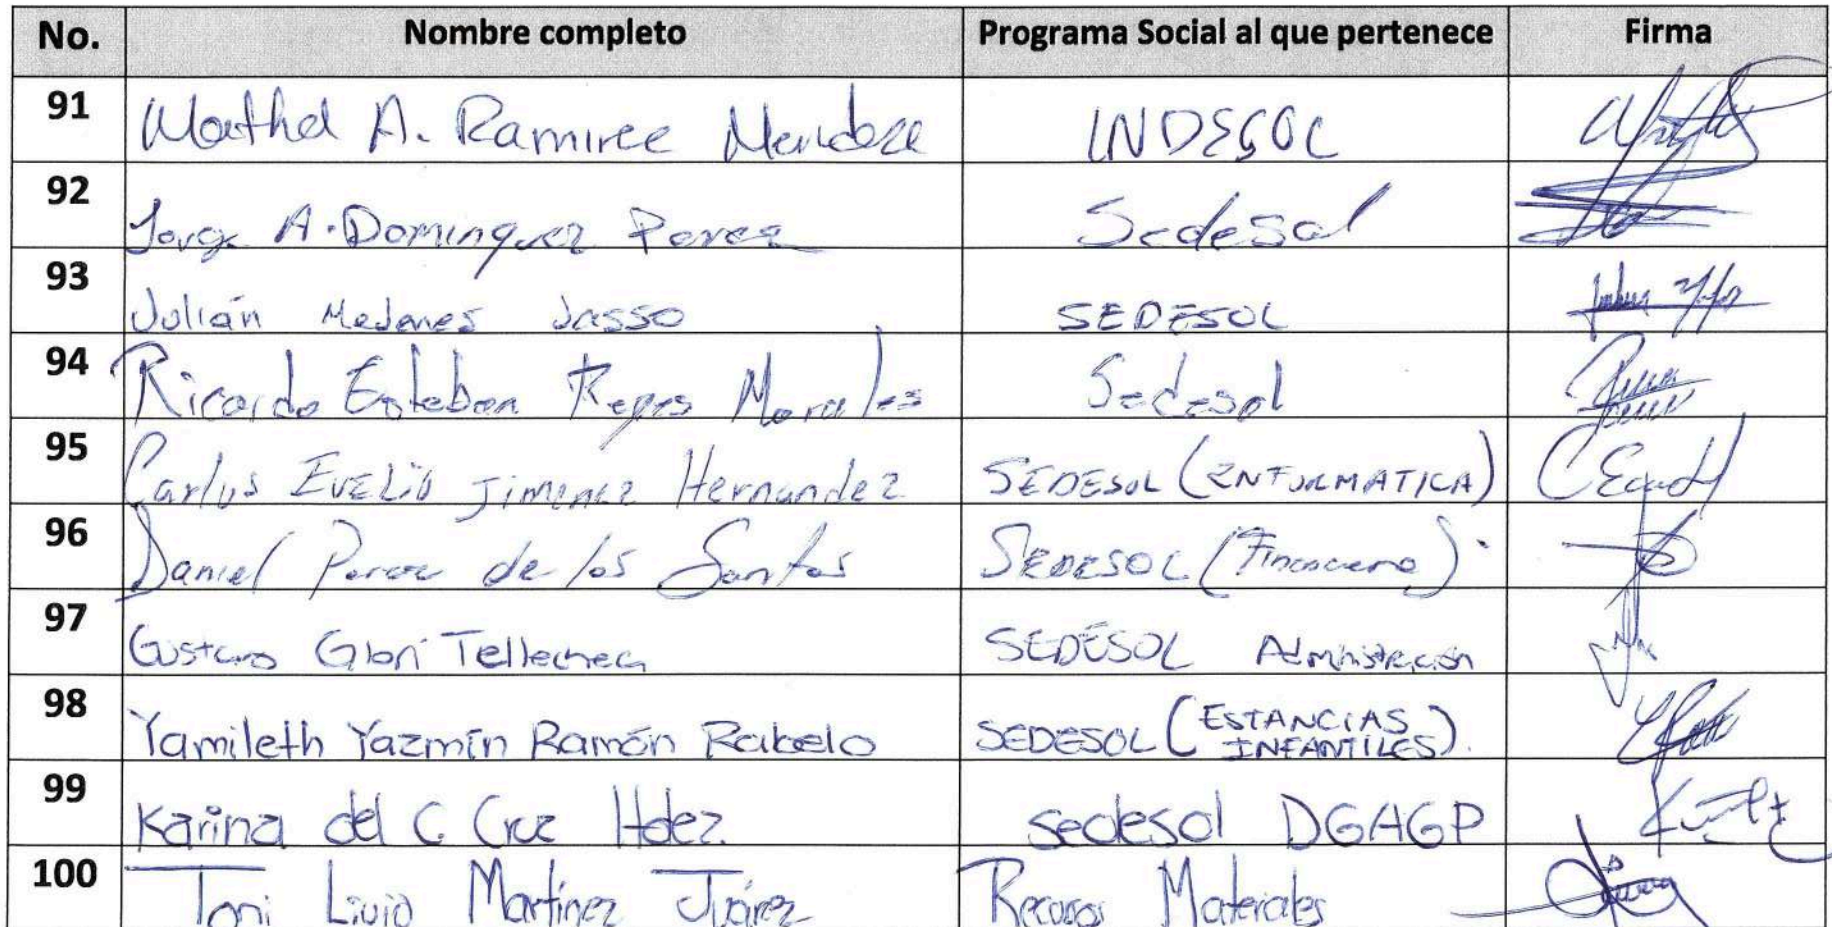 No. Nombre completo Programa Social al que pertenece Firma
91 Marthel A. Ramirez Mendoza INDESOL
92 Jorge A. Dominguez Perez Sedesol
93 Julián Medenes Jasso SEDESOL
94 Ricardo Esteban Reyes Morales Sedesol
95 Carlos EVELIO Jimenez Hernandez SEDESOL (INFORMATICA)
96 Daniel Perez de los Santos SEDESOL (Financiero)
97 Gustavo Glori Tellechea SEDESOL Administración
98 Yamileth Yazmín Ramón Rabelo SEDESOL (ESTANCIAS INFANTILES).
99 Karina del C Cruz Hdez. sedesol DGAGP
100 Toni Livio Martínez Juárez Recursos Materiales